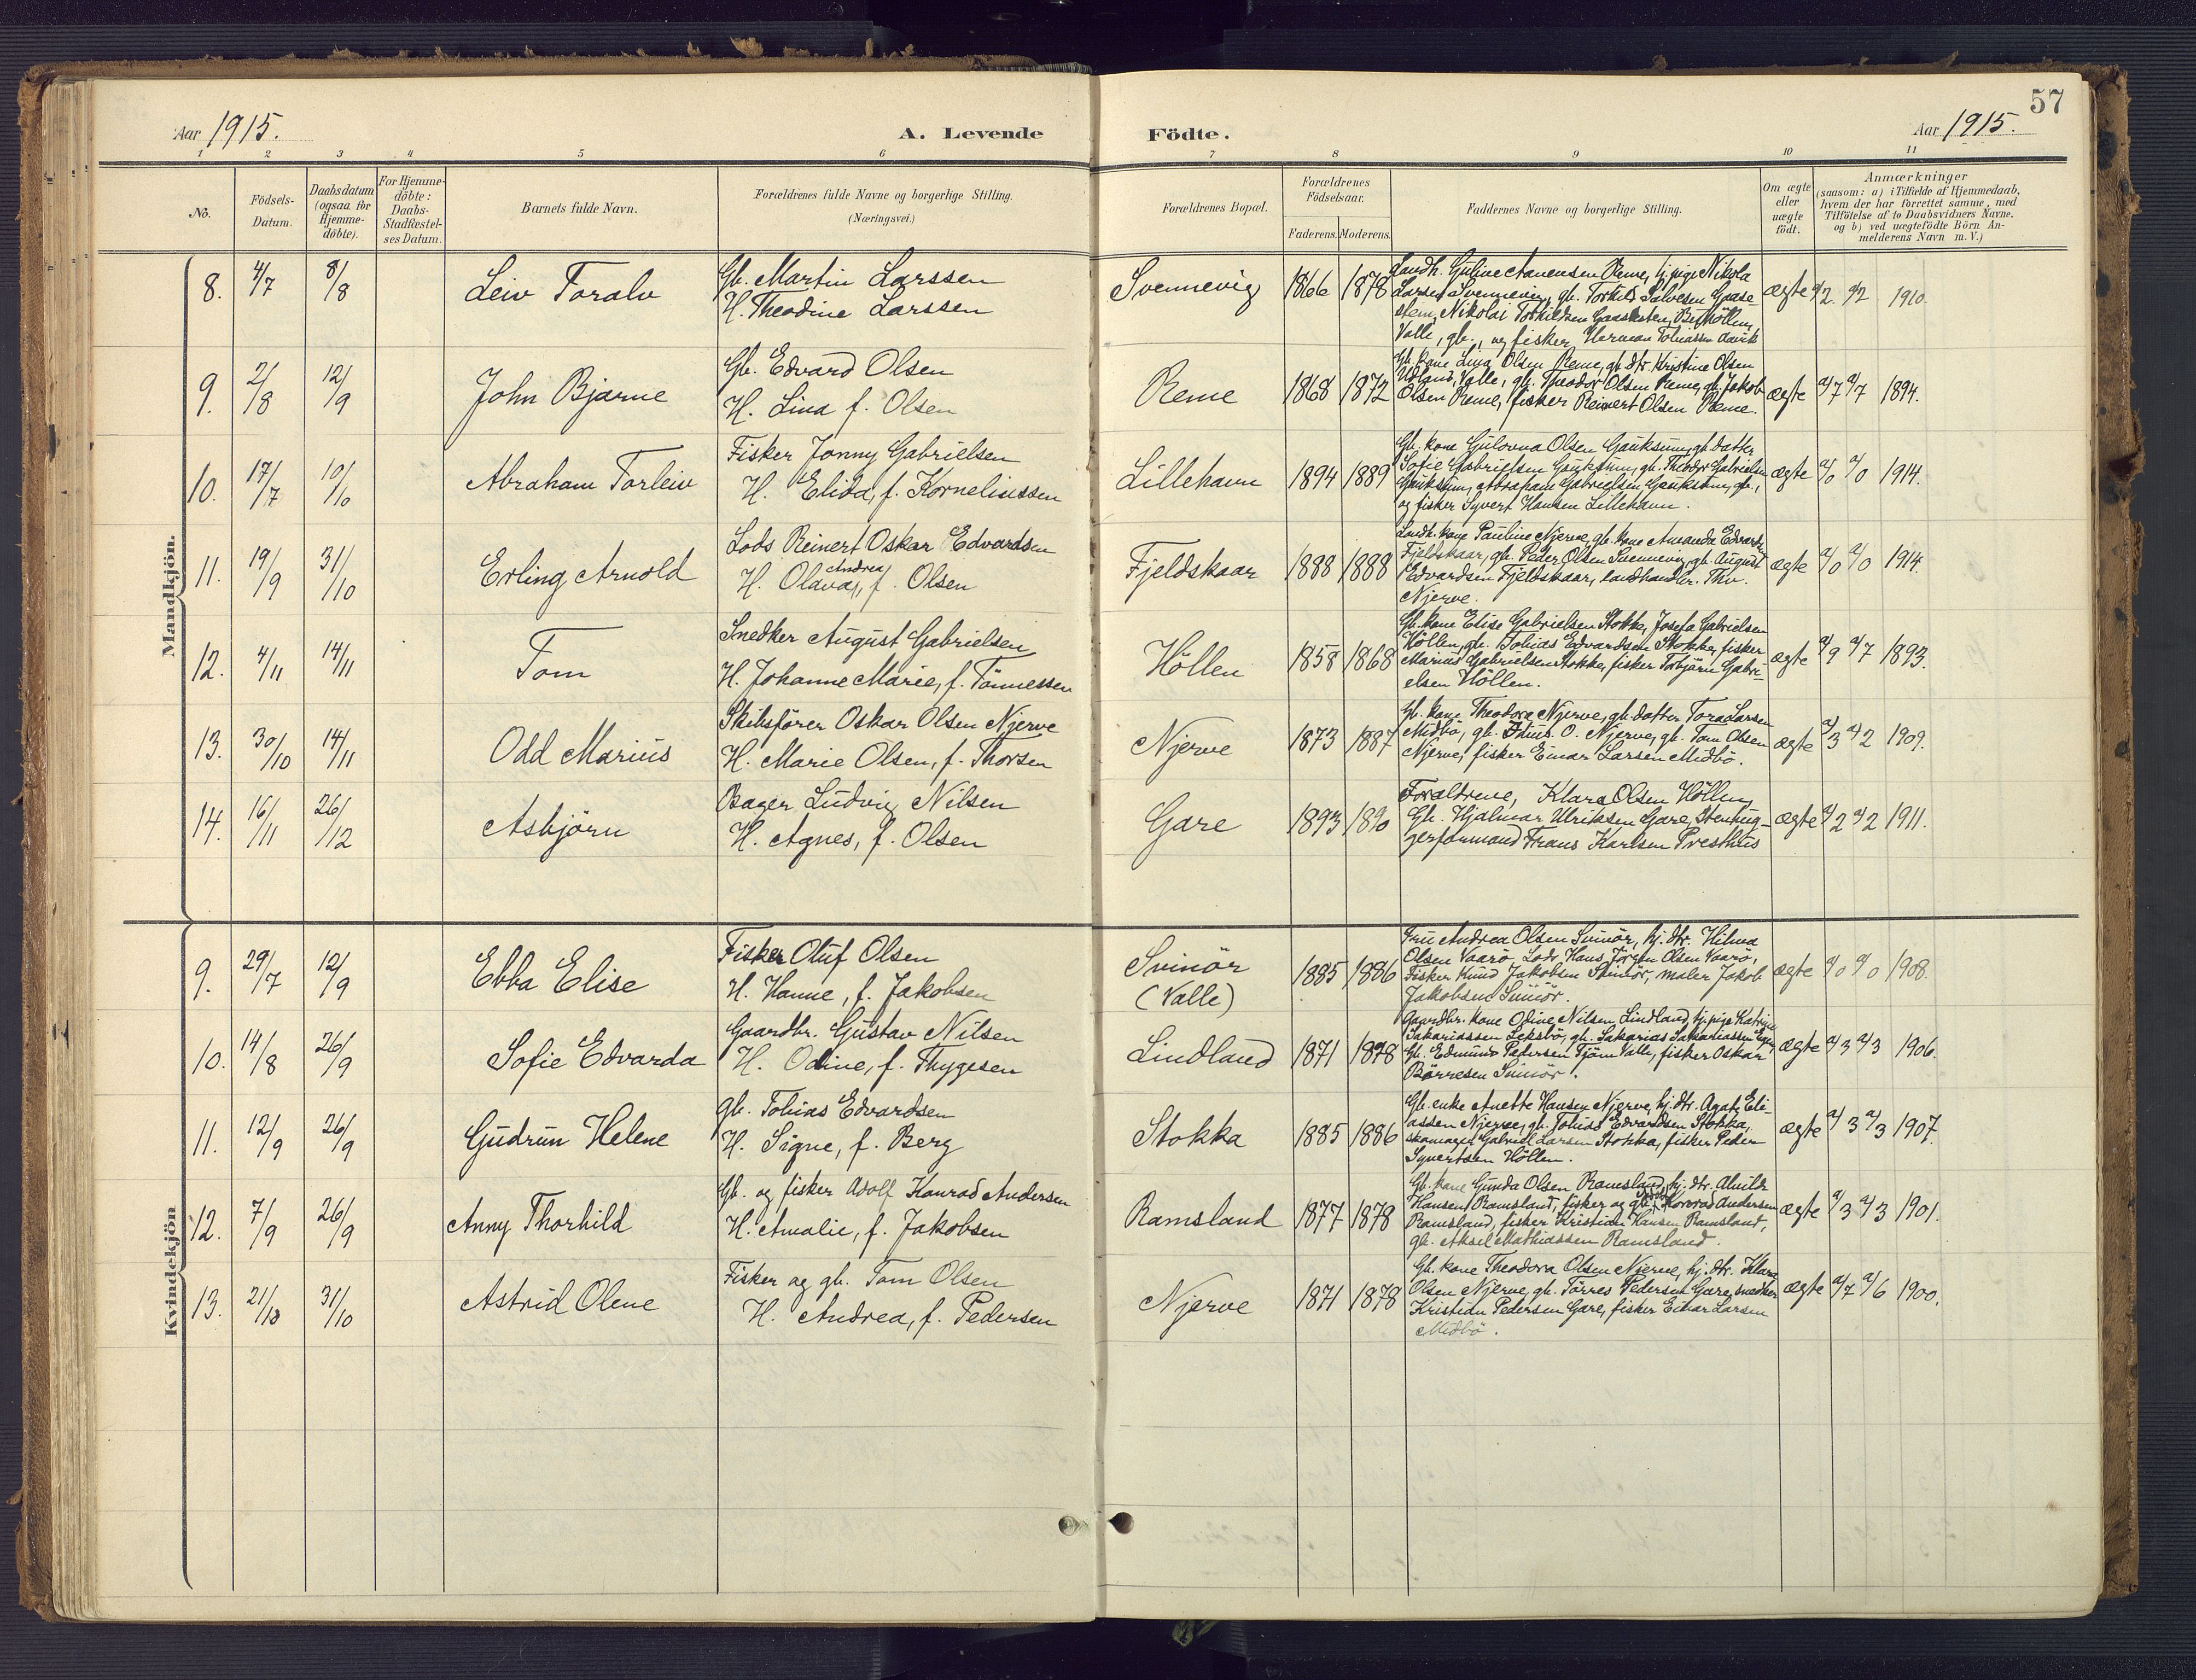 57
Aar 1915.
A. Levende Födte.
Aar 1915.
1 2 3 4 5 6 7 8 9 10 11
No.
Födsels-
Datum.
Daabsdatum
(ogsaa for
Hjemme-
döbte).
For Hjemme-
döbte:
Daabs-
Stadfæstel-
ses Datum.
Barnets fulde Navn.
Forældrenes fulde Navne og borgerlige Stilling.
(Næringsvei.)
Forældrenes Bopæl.
Forældrenes
Födselsaar.
Faderens. Moderens.
Faddernes Navne og borgerlige Stilling.
Om ægte
eller
uægte
födt.
Anmærkninger
(saasom: a) i Tilfælde af Hjemmedaab,
hvem der har forrettet samme, med
Tilföielse af to Daabsvidners Navne.
og b) ved uægtefödte Börn An-
melderens Navn m. V.)
Mandkjön.
8. 4/7 8/8 Leiv Toralv
Gb. Martin Larssen
H. Theodine Larssen
Svennevig 1866 1878
Landh. Guline Aanensen Reme, hj. pige Nikola
Larsen Svennevig, gb. Torkild Salvesen Gaase
sten, Nikolai Torkildsen Gaasesten,
Valle, gb., og fisker Herman Tobiassen
ægte 1910.
9. 2/8 12/9 John Bjarne
Gb. Edvard Olsen
H. Lina f. Olsen
Reme 1868 1872
Gb. kone Lina Olsen Reme, gb. dtr. Kristine Olsen
Udland, Valle, gb. Theodor Olsen Reme, gb. Jakob
Olsen Reme, fisker Reinert Olsen Reme.
ægte a/7 a/7 1894.
10. 17/7 10/10 Abraham Torleiv
Fisker Jonny Gabrielsen
H. Elida, f. Korneliussen
Lillehavn 1894 1889
Gb. kone Gulovna Olsen Gauksum, gb. datter
Sofie Gabrielsen Gauksum, gb. Theodor Gabrielsen
Gauksum, Abraham Gabrielsen Gauksum, gb.,
og fisker Syvert Hansen Lillehavn.
ægte a/0 a/0 1914.
11. 19/9 31/10 Erling Arnold
Lods Reinert Oskar Edvardsen
Andrea
H. Olava, f. Olsen
Fjeldskaar 1888 1888
Landh. kone Pauline Njerve, gb. kone Amanda Edvardsen
Fjeldskaar, gb. Peder Olsen Svennevig, gb. August
Edvardsen Fjeldskaar, landhandler Thv.
Njerve.
ægte a/0 a/0 1914.
12. 4/11 14/11 Tom
Snedker August Gabrielsen
H. Johanne Marie, f. Tönnessen
Höllen 1858 1868
Gb. kone Elise Gabrielsen Stokke, Josefa Gabrielsen
Höllen, gb. Tobias Edvardsen Stokke, fisker
Marius Gabrielsen Stokke, fisker Torbjörn Gabri-
elsen Höllen.
ægte a/9 a/7 1893.
13. 30/10 14/11 Odd Marius
Skibsförer Oskar Olsen Njerve
H. Marie Olsen, f. Thorsen
Njerve 1873 1887
Gb. kone Theodora Njerve, gb. datter Tora Larsen
Midbö, gb. O. Njerve, gb. Tom Olsen
Njerve, fisker Einar Larsen Midbö.
ægte a/3 a/2 1909.
14. 16/11 26/12 Asbjörn
Bager Ludvig Nilsen
H. Agnes, f. Olsen
Gare 1893 1890
Forældrene, Klara Olsen Höllen,
Gb. Hjalmar Ulriksen Gare, Stenhug-
gerformand Frans Karlsen Presthus
ægte a/2 a/2 1911.
Kvindekjön
9. 29/7 12/9 Ebba Elise
Fisker Oluf Olsen
H. Hanne, f. Jakobsen
Svinör
(Valle)
1885 1886
Fru Andrea Olsen Svinör, hj. dtr. Hilma
Olsen Vaarö, Lods Hans Jörgen Olsen Vaarö,
Fisker Knud Jakobsen Svinör, maler Jakob
Jakobsen Svinör.
ægte a/0 a/0 1908.
10. 14/8 26/9 Sofie Edvarda
Gaardbr. Gustav Nilsen
H. Odine, f. Thygesen
Lindland 1871 1878
Gaardbr. kone Odine Nilsen Lindland, hj. pige Katrine
Sakariassen Leksbö, gb. Sakarias Sakariassen
Gb. Edmund Pedersen Tjöm Valle, fisker Oskar
Börresen Svinör.
ægte a/3 a/3 1906.
11. 12/9 26/9 Gudrun Helene
gb. Tobias Edvardsen
H. Signe, f. Berg
Stokka 1885 1886
Gb. enke Anette Hansen Njerve, hj. dtr. Agate Eli-
assen Njerve, gb. Tobias Edvardsen Stokka,
skomager Gabriel Larsen Stokka, fisker Peder
Syvertsen Höllen.
ægte a/3 a/3 1907.
12. 7/9 26/9 Anny Thorhild
Gb. og fisker Adolf Konrad Andersen
H. Amalie, f. Jakobsen
Ramsland 1877 1878
Gb. kone Gunda Olsen Ramsland, hj. dtr. Alvilde
Hansen Ramsland, fisker og gb. Konrad Andersen
Ramsland, fisker Kristian Hansen Ramsland,
gb. Aksel Mathiassen Ramsland.
ægte a/3 a/3 1901.
13. 21/10 31/10 Astrid Olene
Fisker og gb. Tom Olsen
H. Andrea, f. Pedersen
Njerve 1871 1878
Gb. kone Theodora Olsen Njerve, hj. dtr. Klara
Olsen Njerve, gb. Törres Pedersen Gare, snedker
Kristian Pedersen Gare, fisker Einar Larsen
Midbö.
ægte a/7 a/6 1900.